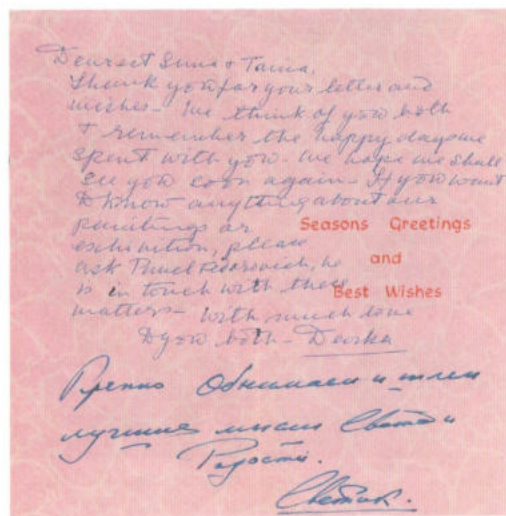 Dearest Sina & Tania,
Thank you for your letter and
wishes – We think of you both
& remember the happy days we
spent with you. We hope we shall
see you soon again – If you want
to know anything about our
paintings or
exhibition, please
ask Pavel Fedorovich, he
is in touch with these
matters – With much love
to you both – Devika
Seasons Greetings
and
Best Wishes
Крепко Обнимаем и шлем
лучшие мысли Света и
Радости.
Светик.